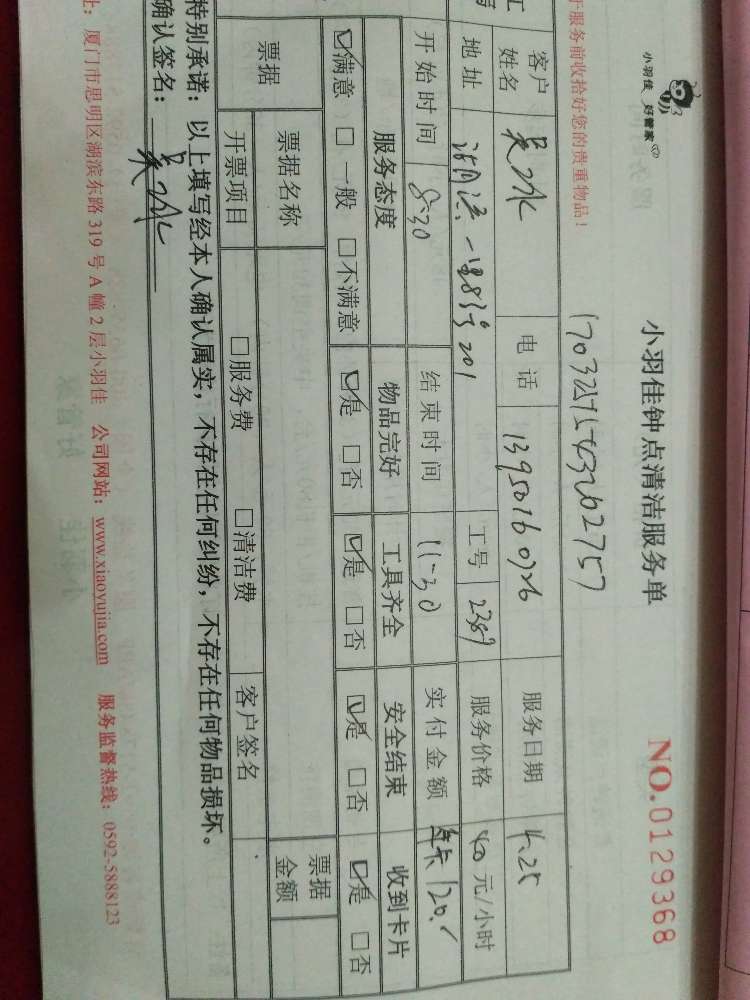 小羽佳 好管家
小羽佳钟点清洁服务单
NO.0129368
于服务前收拾好您的贵重物品！
客户姓名 电话 13950160726 服务日期 4.25
地址 一里83号201 工号 2389 服务价格 40元/小时
开始时间 8-30 结束时间 11-30 实付金额 年卡120.
服务态度 物品完好 工具齐全 安全结束 收到卡片
☑满意 □一般 □不满意 ☑是 □否 ☑是 □否 ☑是 □否 ☑是 □否
票据 票据名称 票据金额
开票项目 □服务费 □清洁费 客户签名
特别承诺：以上填写经本人确认属实，不存在任何纠纷，不存在任何物品损坏。
确认签名：
址：厦门市思明区湖滨东路 319 号 A 幢 2 层小羽佳 公司网站：www.xiaoyujia.com 服务监督热线：0592-5888123